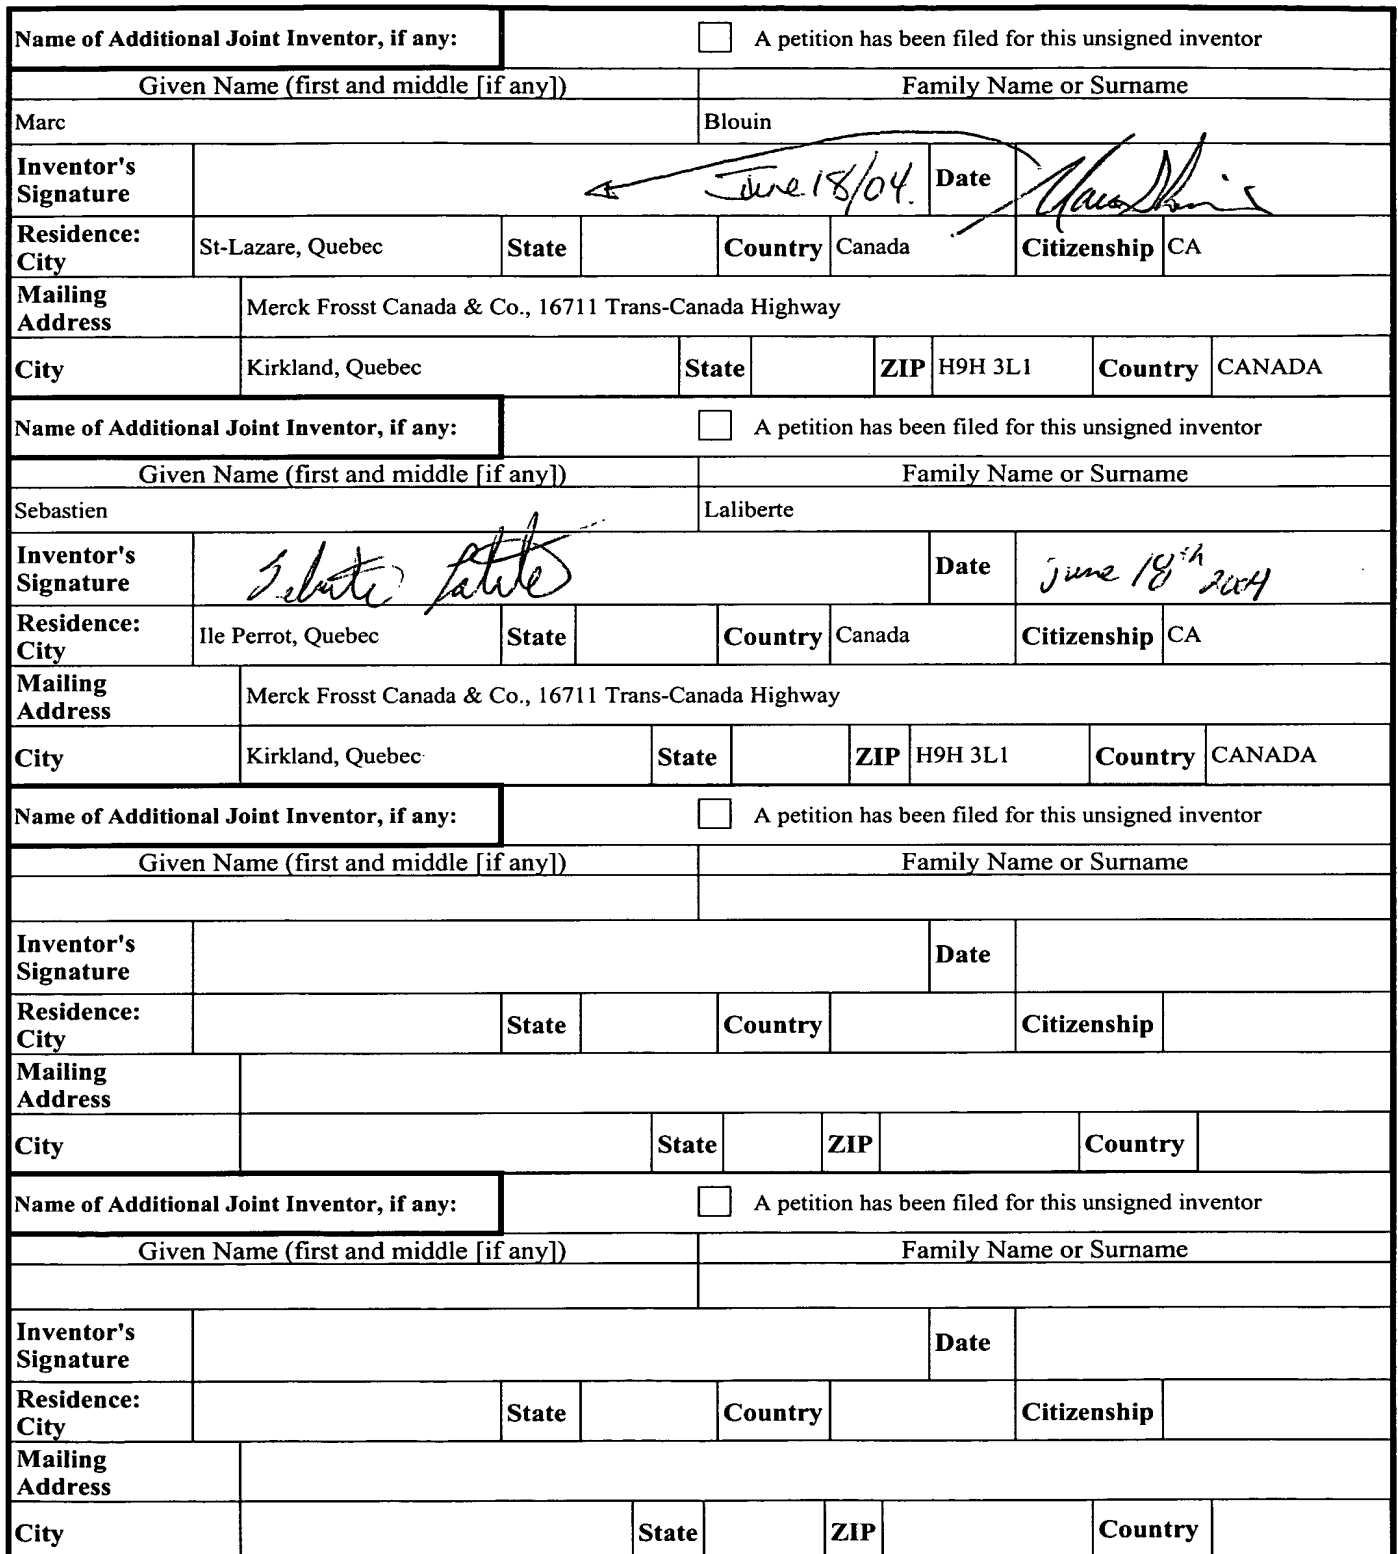 Name of Additional Joint Inventor, if any: A petition has been filed for this unsigned inventor
Given Name (first and middle [if any]) Family Name or Surname
Marc Blouin
Inventor's Signature June 18/04. Date
Residence: City St-Lazare, Quebec State Country Canada Citizenship CA
Mailing Address Merck Frosst Canada & Co., 16711 Trans-Canada Highway
City Kirkland, Quebec State ZIP H9H 3L1 Country CANADA
Name of Additional Joint Inventor, if any: A petition has been filed for this unsigned inventor
Given Name (first and middle [if any]) Family Name or Surname
Sebastien Laliberte
Inventor's Signature Date June 18th 2004
Residence: City Ile Perrot, Quebec State Country Canada Citizenship CA
Mailing Address Merck Frosst Canada & Co., 16711 Trans-Canada Highway
City Kirkland, Quebec State ZIP H9H 3L1 Country CANADA
Name of Additional Joint Inventor, if any: A petition has been filed for this unsigned inventor
Given Name (first and middle [if any]) Family Name or Surname
Inventor's Signature Date
Residence: City State Country Citizenship
Mailing Address
City State ZIP Country
Name of Additional Joint Inventor, if any: A petition has been filed for this unsigned inventor
Given Name (first and middle [if any]) Family Name or Surname
Inventor's Signature Date
Residence: City State Country Citizenship
Mailing Address
City State ZIP Country